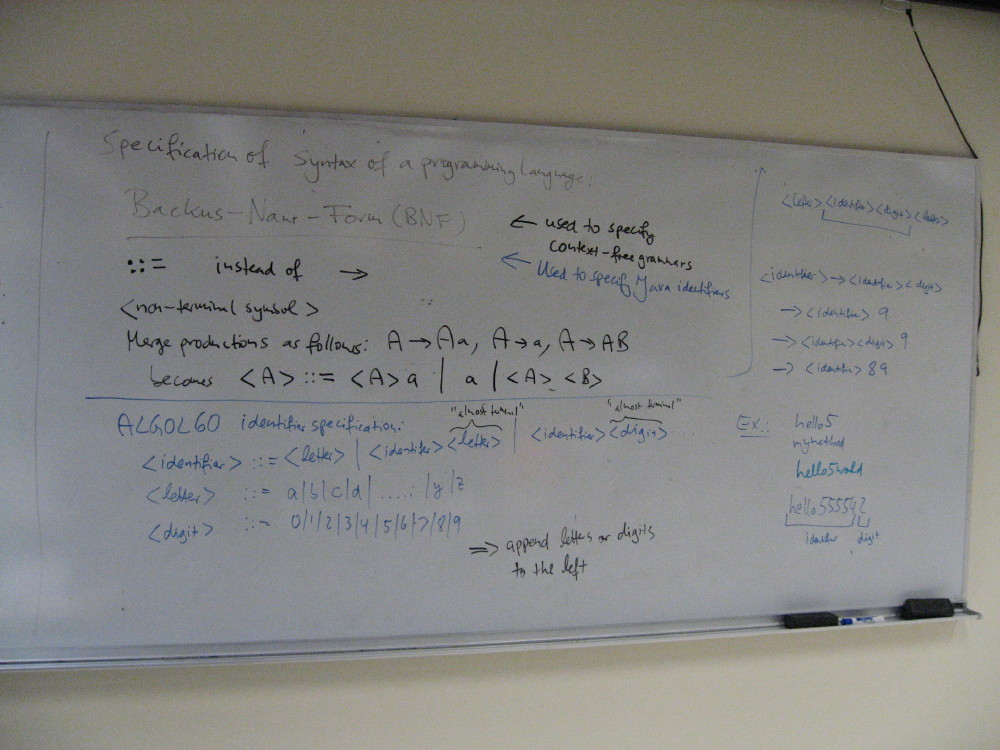 Specification of Syntax of a programming language:
Backus-Naur-Form (BNF)
← used to specify
context-free grammars
← Used to specify Java identifiers
::= instead of →
<non-terminal symbol>
Merge productions as follows: A → Aa, A → a, A → AB
becomes <A> ::= <A> a | a | <A> <B>
ALGOL60 identifier specification:
"almost terminal" "almost terminal"
<identifier> ::= <letter> | <identifier> <letter> | <identifier> <digit>
<letter> ::= a|b|c|d| ..... |y|z
<digit> ::= 0|1|2|3|4|5|6|7|8|9
=> append letters or digits
to the left
<letter> <identifier> <digit> <letter>
<identifier> → <identifier> <digit>
→ <identifier> 9
→ <identifier> <digit> 9
→ <identifier> 89
EX.: hello5
mymethod
hello5world
hello555542
identifier digit